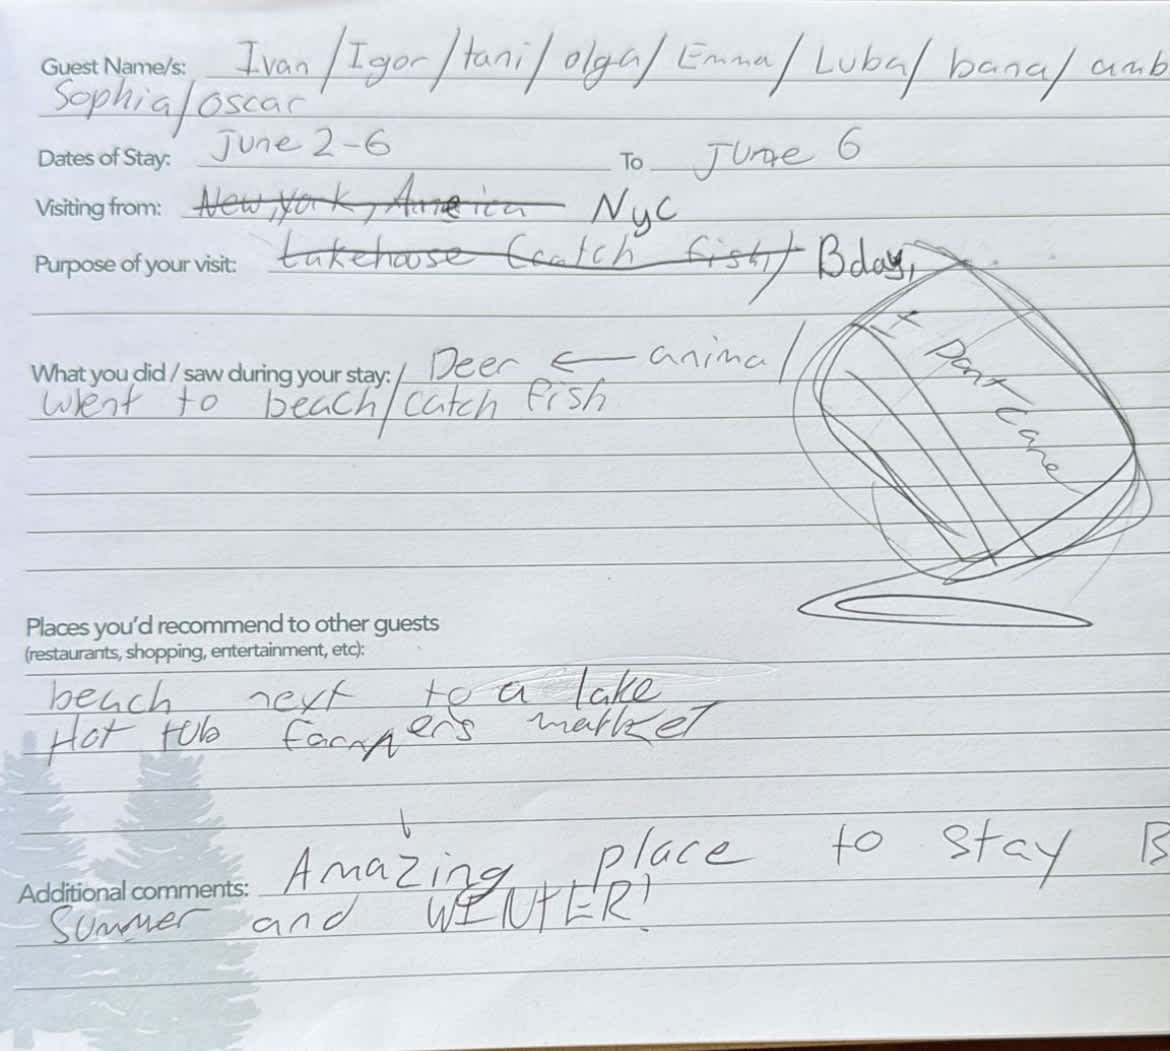 Guest Name/s: Ivan/Igor/tani/olga/Emma/Luba/bana/amb
Sophia/oscar
Dates of Stay: June 2-6 To June 6
Visiting from: New,york, America NyC
Purpose of your visit: Lakehouse (catch fish) Bday,
I Dont care
What you did / saw during your stay:/ Deer ← animal/
went to beach/catch fish
Places you'd recommend to other guests
(restaurants, shopping, entertainment, etc):
beach next to a lake
Hot tub farmers market
Additional comments: Amazing place to stay B
Summer and WINTER!